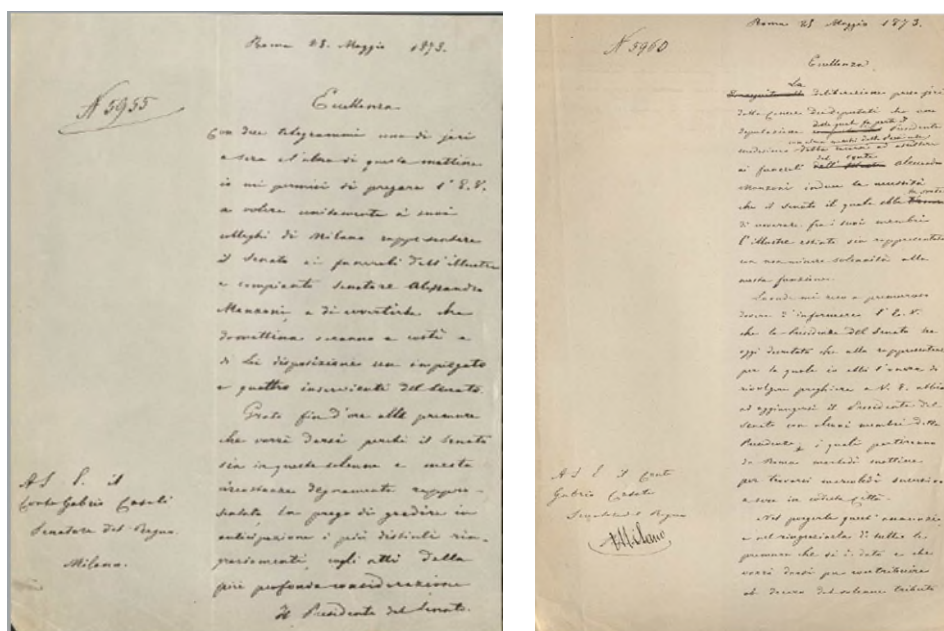 Roma 23. Maggio 1873.
N 5955
Eccellenza
Con due telegrammi uno di jeri
a sera e l'altro di questa mattina
io mi permisi di pregare l'E.V.
a volere unitamente a' suoi
colleghi di Milano rappresentare
il Senato ai funerali dell'illustre
e compianto Senatore Alessandro
Manzoni, e di avvertirla che
domattina saranno a costì a
di Lei disposizione un impiegato
e quattro inservienti del Senato.
Grato fin d'ora alle premure
che vorrà darsi perché il Senato
sia in questa solenne e mesta
circostanza degnamente rappre-
sentato La prego di gradire in
anticipazione i più distinti rin-
graziamenti, cogli atti della
più profonda considerazione
Il Presidente del Senato.
A S. E. il
Conte Gabrio Casati
Senatore del Regno.
Milano.
Roma 23 Maggio 1873.
N 5960
Eccellenza
La
deliberazione presa jeri
dalla Camera dei deputati che una
deputazione Presidente
medesima ad assistere
ai funerali del Conte Alessandro
Manzoni induce la necessità
che il Senato il quale ebbe
di annoverare fra i suoi membri
l'illustre estinto sia rappresentato
con non minore solennità alla
mesta funzione.
Laonde mi reco a premuroso
dovere d'informare l'E.V.
che la Presidenza del Senato ha
oggi deliberato che alla rappresentanza
per la quale io ebbi l'onore di
rivolgere preghiera a V.E. abbia
ad aggiungersi il Presidente del
Senato con alcuni membri della
Presidenza, i quali partiranno
da Roma martedì mattina
per trovarsi mercoledì
a sera in codesta Città.
Nel porgerle quest'annunzio
e nel ringraziarla di tutte le
premure che si è data e che
vorrà darsi per contribuire
al decoro del solenne tributo
A S. E. il Conte
Gabrio Casati
Senatore del Regno
Milano